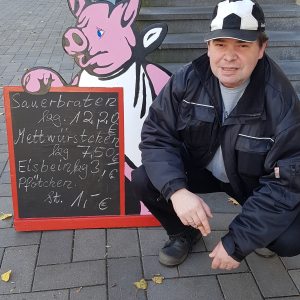 Sauerbraten
kg. 12,20
€
Mettwürstchen
kg 7,50
€
Eisbein kg 3,
€
Pfötchen
st. 1,- €